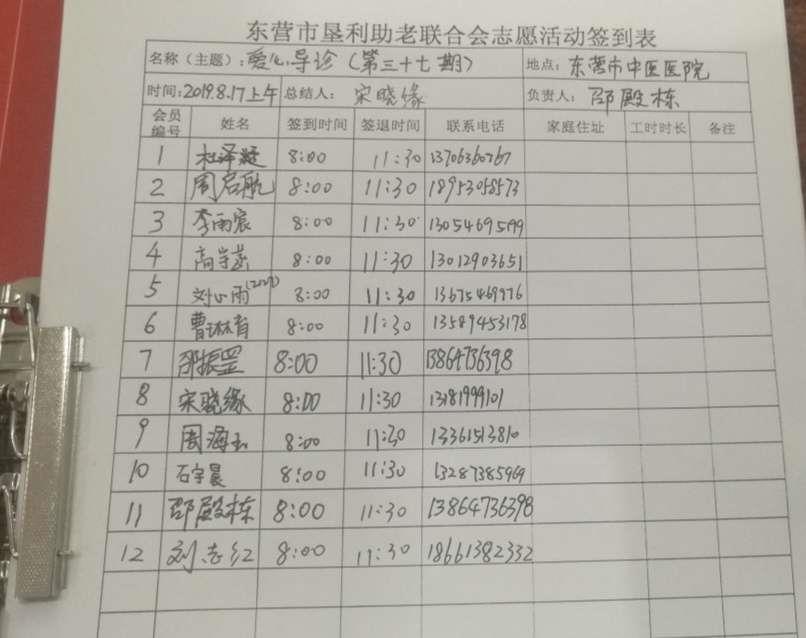 东营市垦利助老联合会志愿活动签到表
名称(主题):爱心导诊(第三十七期) 地点:东营市中医医院
时间:2019.8.17上午 总结人: 宋晓缘 负责人:邵殿栋
会员编号 姓名 签到时间 签退时间 联系电话 家庭住址 工时时长 备注
1 杜泽凝 8:00 11:30
2 周启航 8:00 11:30 18953058573
3 李雨宸 8:00 11:30 13054695199
4 8:00 11:30 13012903651
5 刘心雨 8:00 11:30 13675469976
6 曹琳育 8:00 11:30 13589453178
7 邵振罡 8:00 11:30 13864736398
8 宋晓缘 8:00 11:30 13181999101
9 周海玉 8:00 11:30 13361513810
10 石宇晨 8:00 11:30 13287385969
11 邵殿栋 8:00 11:30 13864736398
12 刘志红 8:00 11:30 18661382332